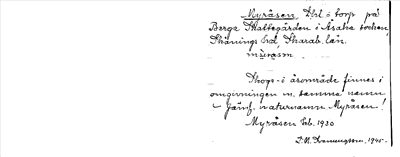 Myråsen, Lht o torp på
Berga Skattegården i Åsaka socken,
Skånings hd, Skarab. län.
myråsn
Skogs- i åsområde finnes i
omgivningen m. samma namn
- Jämf. naturnamn Myråsen!
Myråsen Lb. 1930
1945.